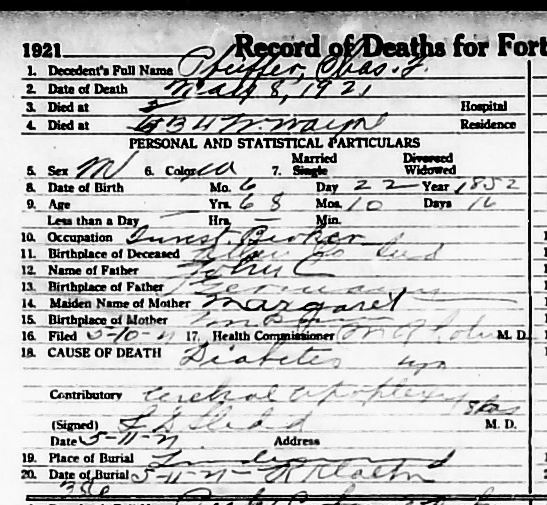 1921 Record of Deaths for Fort
1. Decedent's Full Name Pfeiffer, Chas. F.
2. Date of Death May 8, 1921
3. Died at Hospital
4. Died at 634 W. Wayne Residence
PERSONAL AND STATISTICAL PARTICULARS
5. Sex M 6. Color W 7. Married Single Divorced Widowed
8. Date of Birth Mo. 6 Day 22 Year 1852
9. Age Yrs. 68 Mos. 10 Days 16
Less than a Day — Hrs. — Min.
10. Occupation Invest. Broker
11. Birthplace of Deceased Ind
12. Name of Father John C
13. Birthplace of Father Germany
14. Maiden Name of Mother Margaret
15. Birthplace of Mother
16. Filed 5-10-21 17. Health Commissioner M. D.
18. CAUSE OF DEATH Diabetes
Contributory Cerebral apoplexy
(Signed) M. D.
Date 5-11-21 Address
19. Place of Burial Lindenwood
20. Date of Burial 5-11-21